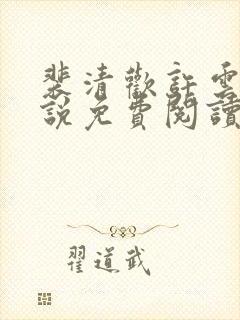 裴清歡許雲
說免費閱讀
翟道武